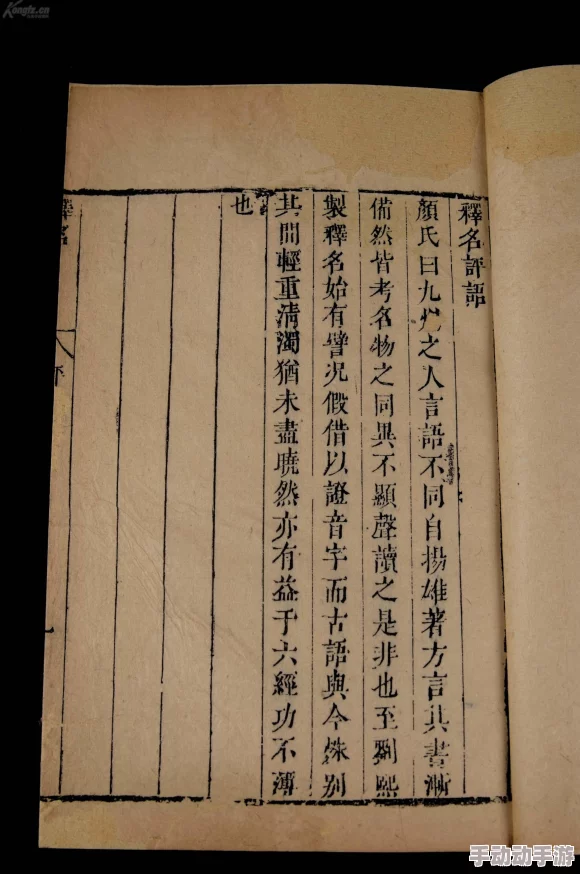 釋名評語
顏氏曰九州之人言語不同自揚雄著方言其書漸
備然皆考名物之同異不顯聲讀之是非也至劉熙
製釋名始有譬況假借以證音字而古語與今殊別
其間輕重清濁猶未盡曉然亦有益于六經功不薄
也
釋名
評
Kongfz.cn
手动动手游